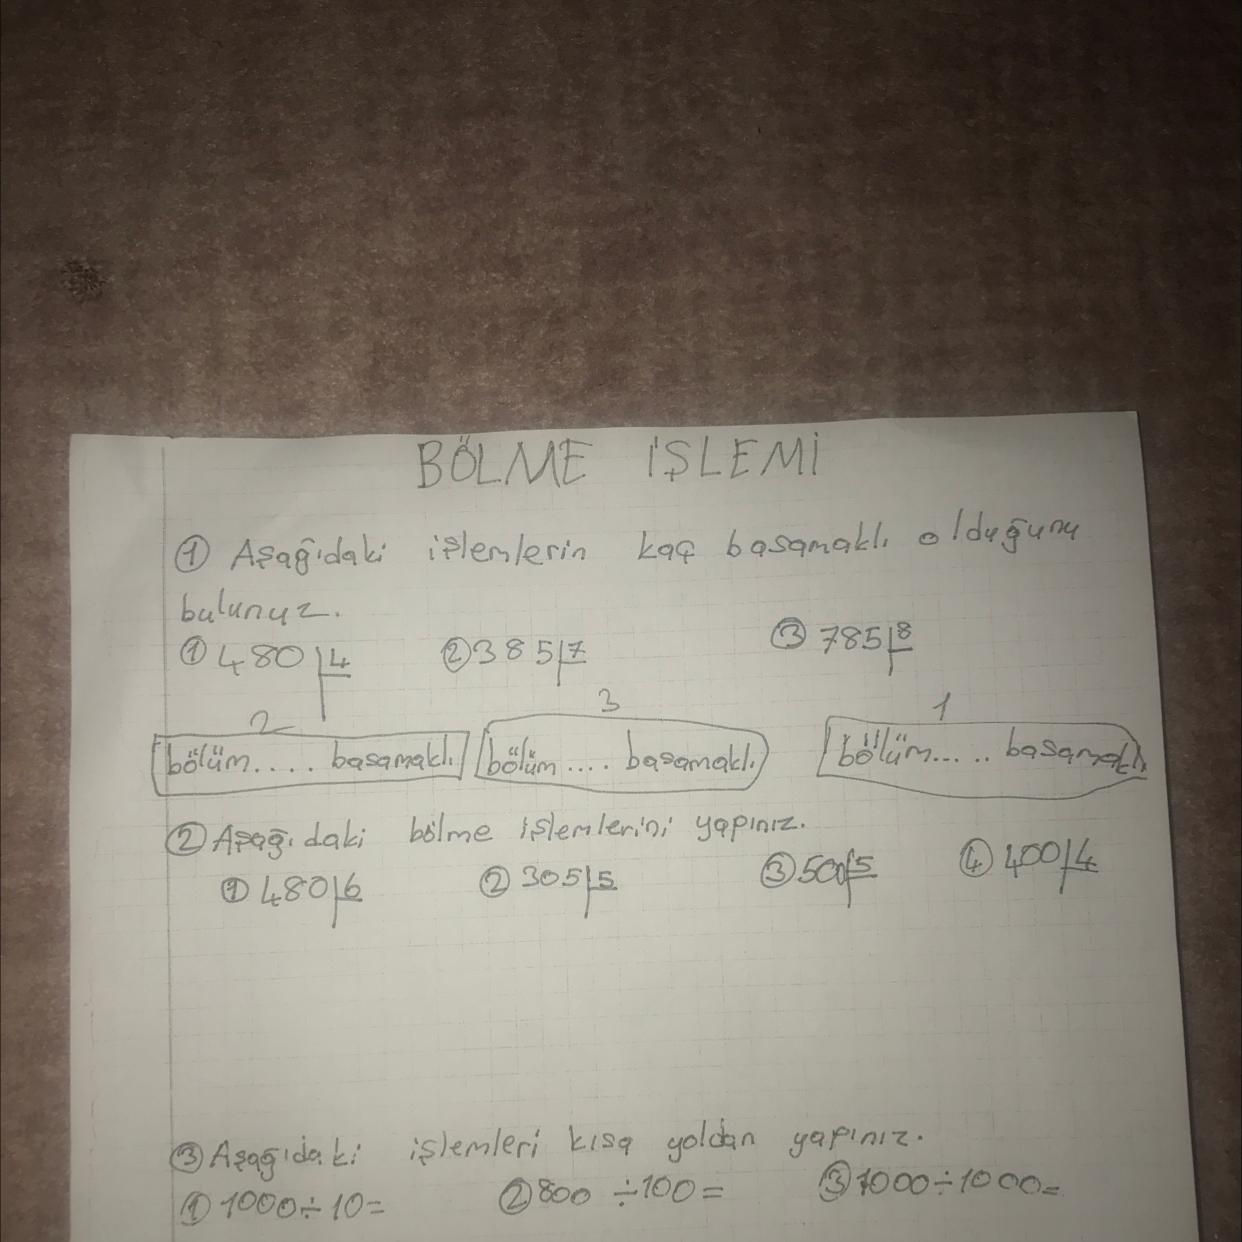 BÖLME İŞLEMİ
① Aşağıdaki işlemlerin kaç basamaklı olduğunu
bulunuz.
① 480 4 ② 385 7 ③ 785 8
2 3 1
bölüm.... basamaklı. bölüm.... basamaklı. bölüm..... basamaklı.
② Aşağıdaki bölme işlemlerini yapınız.
① 480 6 ② 305 5 ③ 500 5 ④ 400 4
③ Aşağıdaki işlemleri kısa yoldan yapınız.
① 1000÷10= ② 800 ÷100= ③ 1000÷1000=